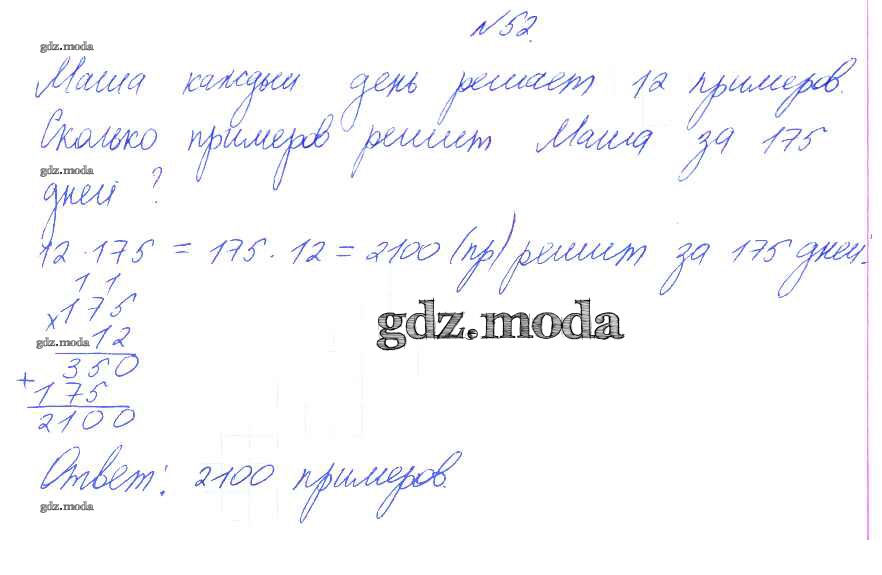 №52.
gdz.moda
Маша каждый день решает 12 примеров.
Сколько примеров решит Маша за 175
gdz.moda
дней ?
12 · 175 = 175 · 12 = 2100 (пр) решит за 175 дней.
1 1
×175
gdz.moda 12
350
+175
2100
gdz.moda
Ответ: 2100 примеров.
gdz.moda